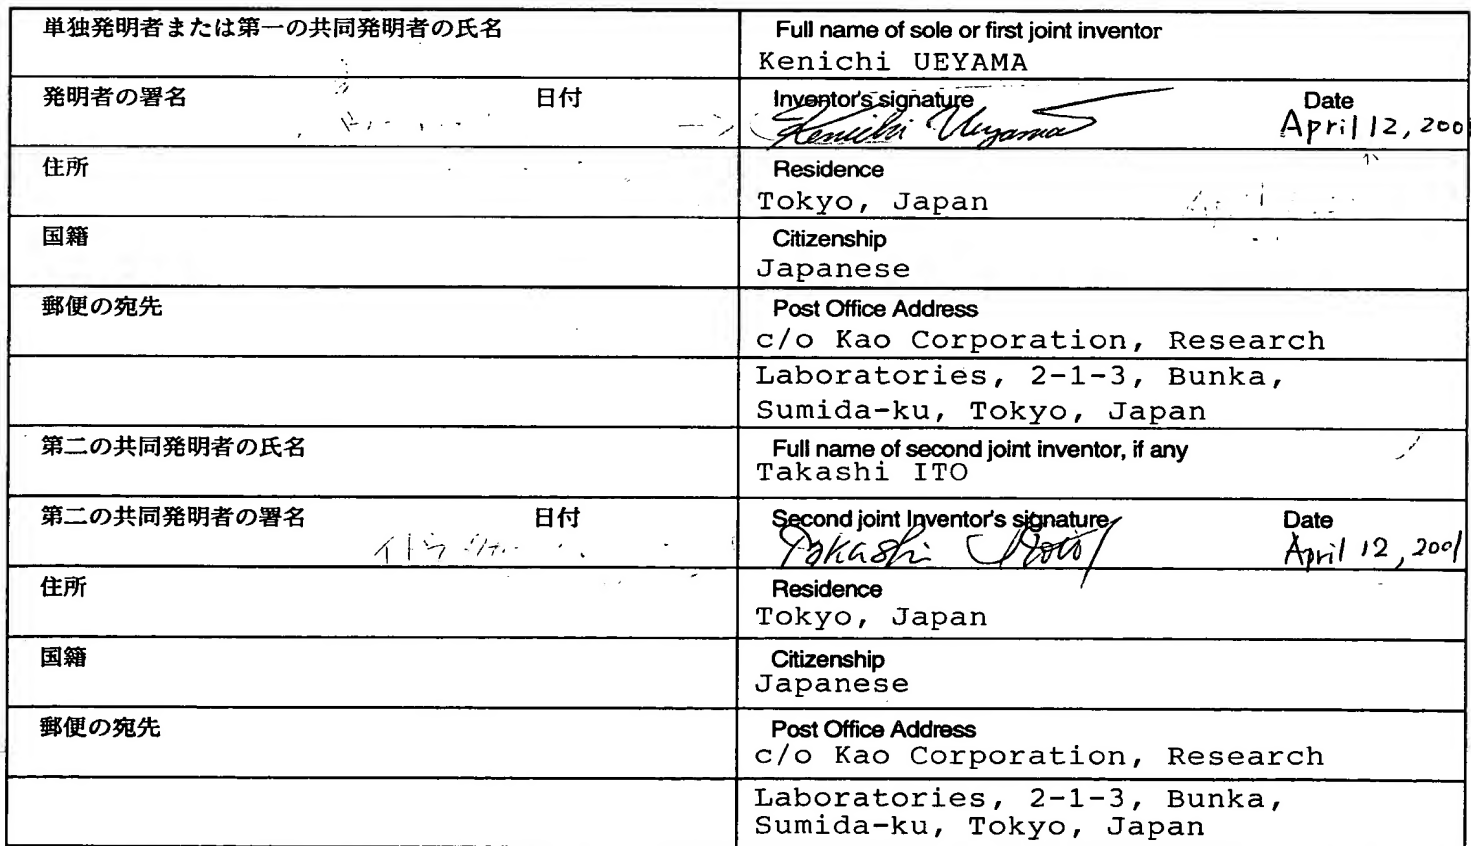 単独発明者または第一の共同発明者の氏名
Full name of sole or first joint inventor
Kenichi UEYAMA
発明者の署名 日付
Inventor's signature Date
Kenichi Ueyama April 12, 200
住所
Residence
Tokyo, Japan
国籍
Citizenship
Japanese
郵便の宛先
Post Office Address
c/o Kao Corporation, Research
Laboratories, 2-1-3, Bunka,
Sumida-ku, Tokyo, Japan
第二の共同発明者の氏名
Full name of second joint inventor, if any
Takashi ITO
第二の共同発明者の署名 日付
Second joint Inventor's signature Date
Takashi Itoto April 12, 2001
住所
Residence
Tokyo, Japan
国籍
Citizenship
Japanese
郵便の宛先
Post Office Address
c/o Kao Corporation, Research
Laboratories, 2-1-3, Bunka,
Sumida-ku, Tokyo, Japan